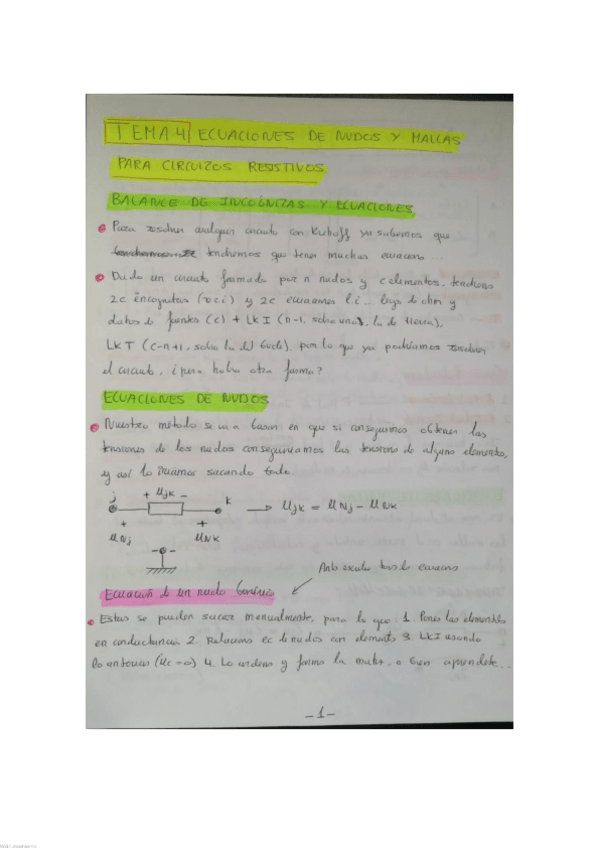 TEMA 4 ECUACIONES DE NUDOS Y MALLAS
PARA CIRCUITOS RESISTIVOS
BALANCE DE INCOGNITAS Y ECUACIONES
Para resolver cualquier circuito con Kirhoff ya sabemos que
tendremos que tener muchas ecuaciones...
Dado un circuito formado por n nudos y c elementos, tendremos
2c incognitas (v c i) y 2c ecuaciones l.i. leyes de ohm y
datos de fuentes (c) + LKI (n-1, sobra una, la de tierra),
LKT (c-n+1, sobra la del bucle), por lo que ya podriamos resolver
el circuito, ¿pero habra otra forma?
ECUACIONES DE NUDOS
Nuestro método se va a basar en que si conseguimos obtener las
tensiones de los nudos conseguiriamos las tensiones de alguno elementos,
y así lo iriamos sacando todo
j + Ujk - k → Ujk = UNj - UNk
+ +
UNj UNk
- -
Anto escribe todas las ecuaciones
Ecuación de un nudo Genérico
Estas se pueden sacar manualmente, para lo que: 1. Pones los elementos
en conductancia 2. Relaciono ec de nudos con elemento 3. LKI usando
lo anterior 4. Lo ordeno y formo la matriz, o bien aprendete...
-1-